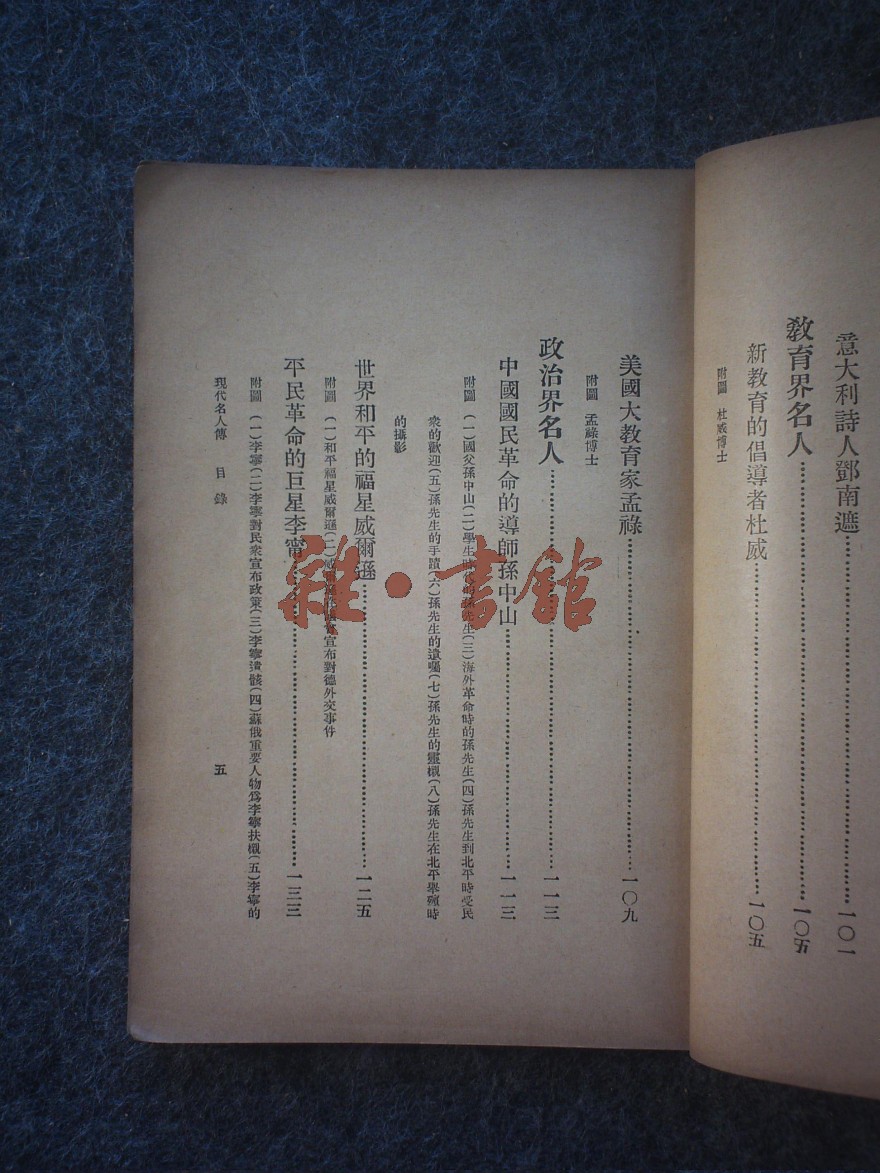 意大利詩人鄧南遮……一〇一
教育界名人……一〇五
新教育的倡導者杜威……一〇五
附圖 杜威博士
美國大教育家孟祿……一〇九
附圖 孟祿博士
政治界名人……一一三
中國國民革命的導師孫中山……一一三
附圖 (一)國父孫中山(二)學生時代的孫先生(三)海外革命時的孫先生(四)孫先生到北平時受民
衆的歡迎(五)孫先生的手蹟(六)孫先生的遺囑(七)孫先生的靈櫬(八)孫先生在北平舉殯時
的攝影
世界和平的福星威爾遜……一二五
附圖 (一)和平福星威爾遜(二)威爾遜宣布對德外交事件
平民革命的巨星李甯……一三三
附圖 (一)李寧(二)李寧對民衆宣布政策(三)李寧遺骸(四)蘇俄重要人物爲李寧扶櫬(五)李寧的
現代名人傳 目錄
五
雜·書館